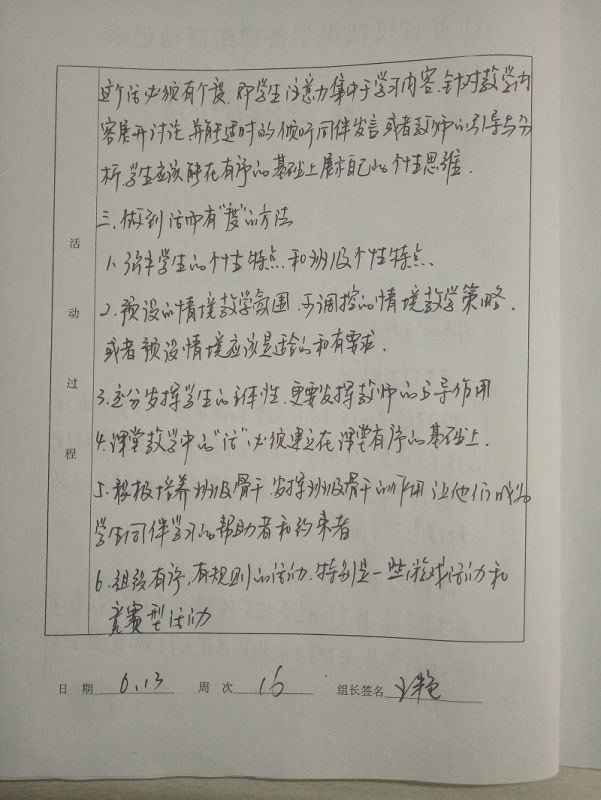 这个活必须有个度，即学生注意力集中于学习内容，针对教学内
容展开讨论，并能适时的倾听同伴发言或者教师的引导与分
析，学生应该能在有序的基础上展示自己的个性思维．
三．做到活而有"度"的方法
1、学生的个性特点和班级个性特点、
2．预设的情境教学氛围，可调控的情境教学策略．
或者预设情境应该是适合的和有要求．
3．充分发挥学生的主体性，更要发挥教师的主导作用
4．课堂教学中的"活"必须建立在课堂有序的基础上．
5．积极培养班级骨干，发挥班级骨干的作用 让他们成为
学生同伴学习的帮助者和约束者
6．组织有序，有规则的活动．特别是一些游戏活动和
竞赛型活动
活
动
过
程
日 期 6.13 周 次 16 组长签名